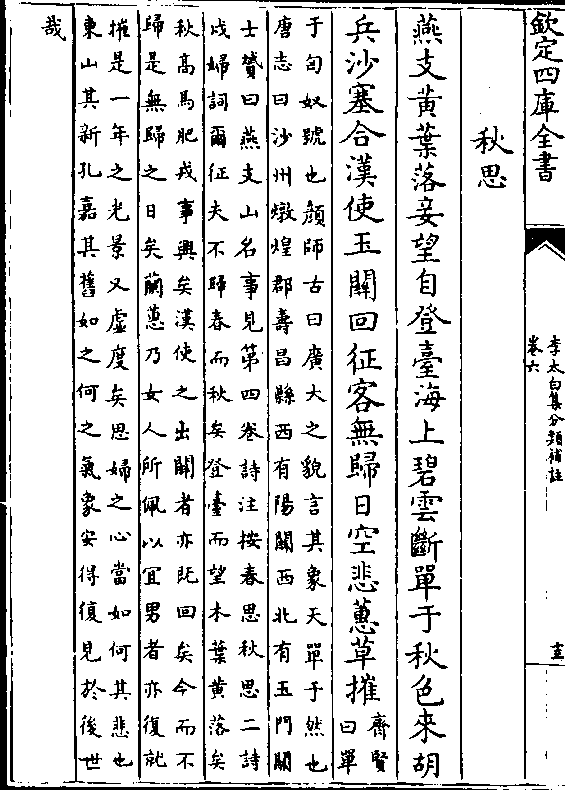 欽定四庫全書
李太白集分類補註
卷六
秋思
燕支黃葉落妾望自登臺海上碧雲斷單于秋色來胡
兵沙塞合漢使玉關回征客無歸日空悲蕙草摧
齊賢
曰單
于匈奴號也顏師古曰廣大之貌言其象天單于然也
唐志曰沙州燉煌郡壽昌縣西有陽關西北有玉門關
士贇曰燕支山名事見第四卷詩注按春思秋思二詩
戍婦詞爾征夫不歸春而秋矣登臺而望木葉黃落矣
秋高馬肥戎事興矣漢使之出關者亦既回矣今而不
歸是無歸之日矣蘭蕙乃女人所佩以宜男者亦復就
摧是一年之光景又虛度矣思婦之心當如何其悲也
東山其新孔嘉其舊如之何之氣象安得復見於後世
哉